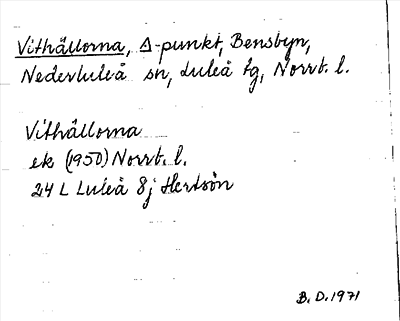 Vithällorna, Δ-punkt, Bensbyn,
Nederluleå sn, Luleå tg, Norrb. l.
Vithällorna
ek (1950) Norrb. l.
24 L Luleå 8j Hertsön
B. D. 1971